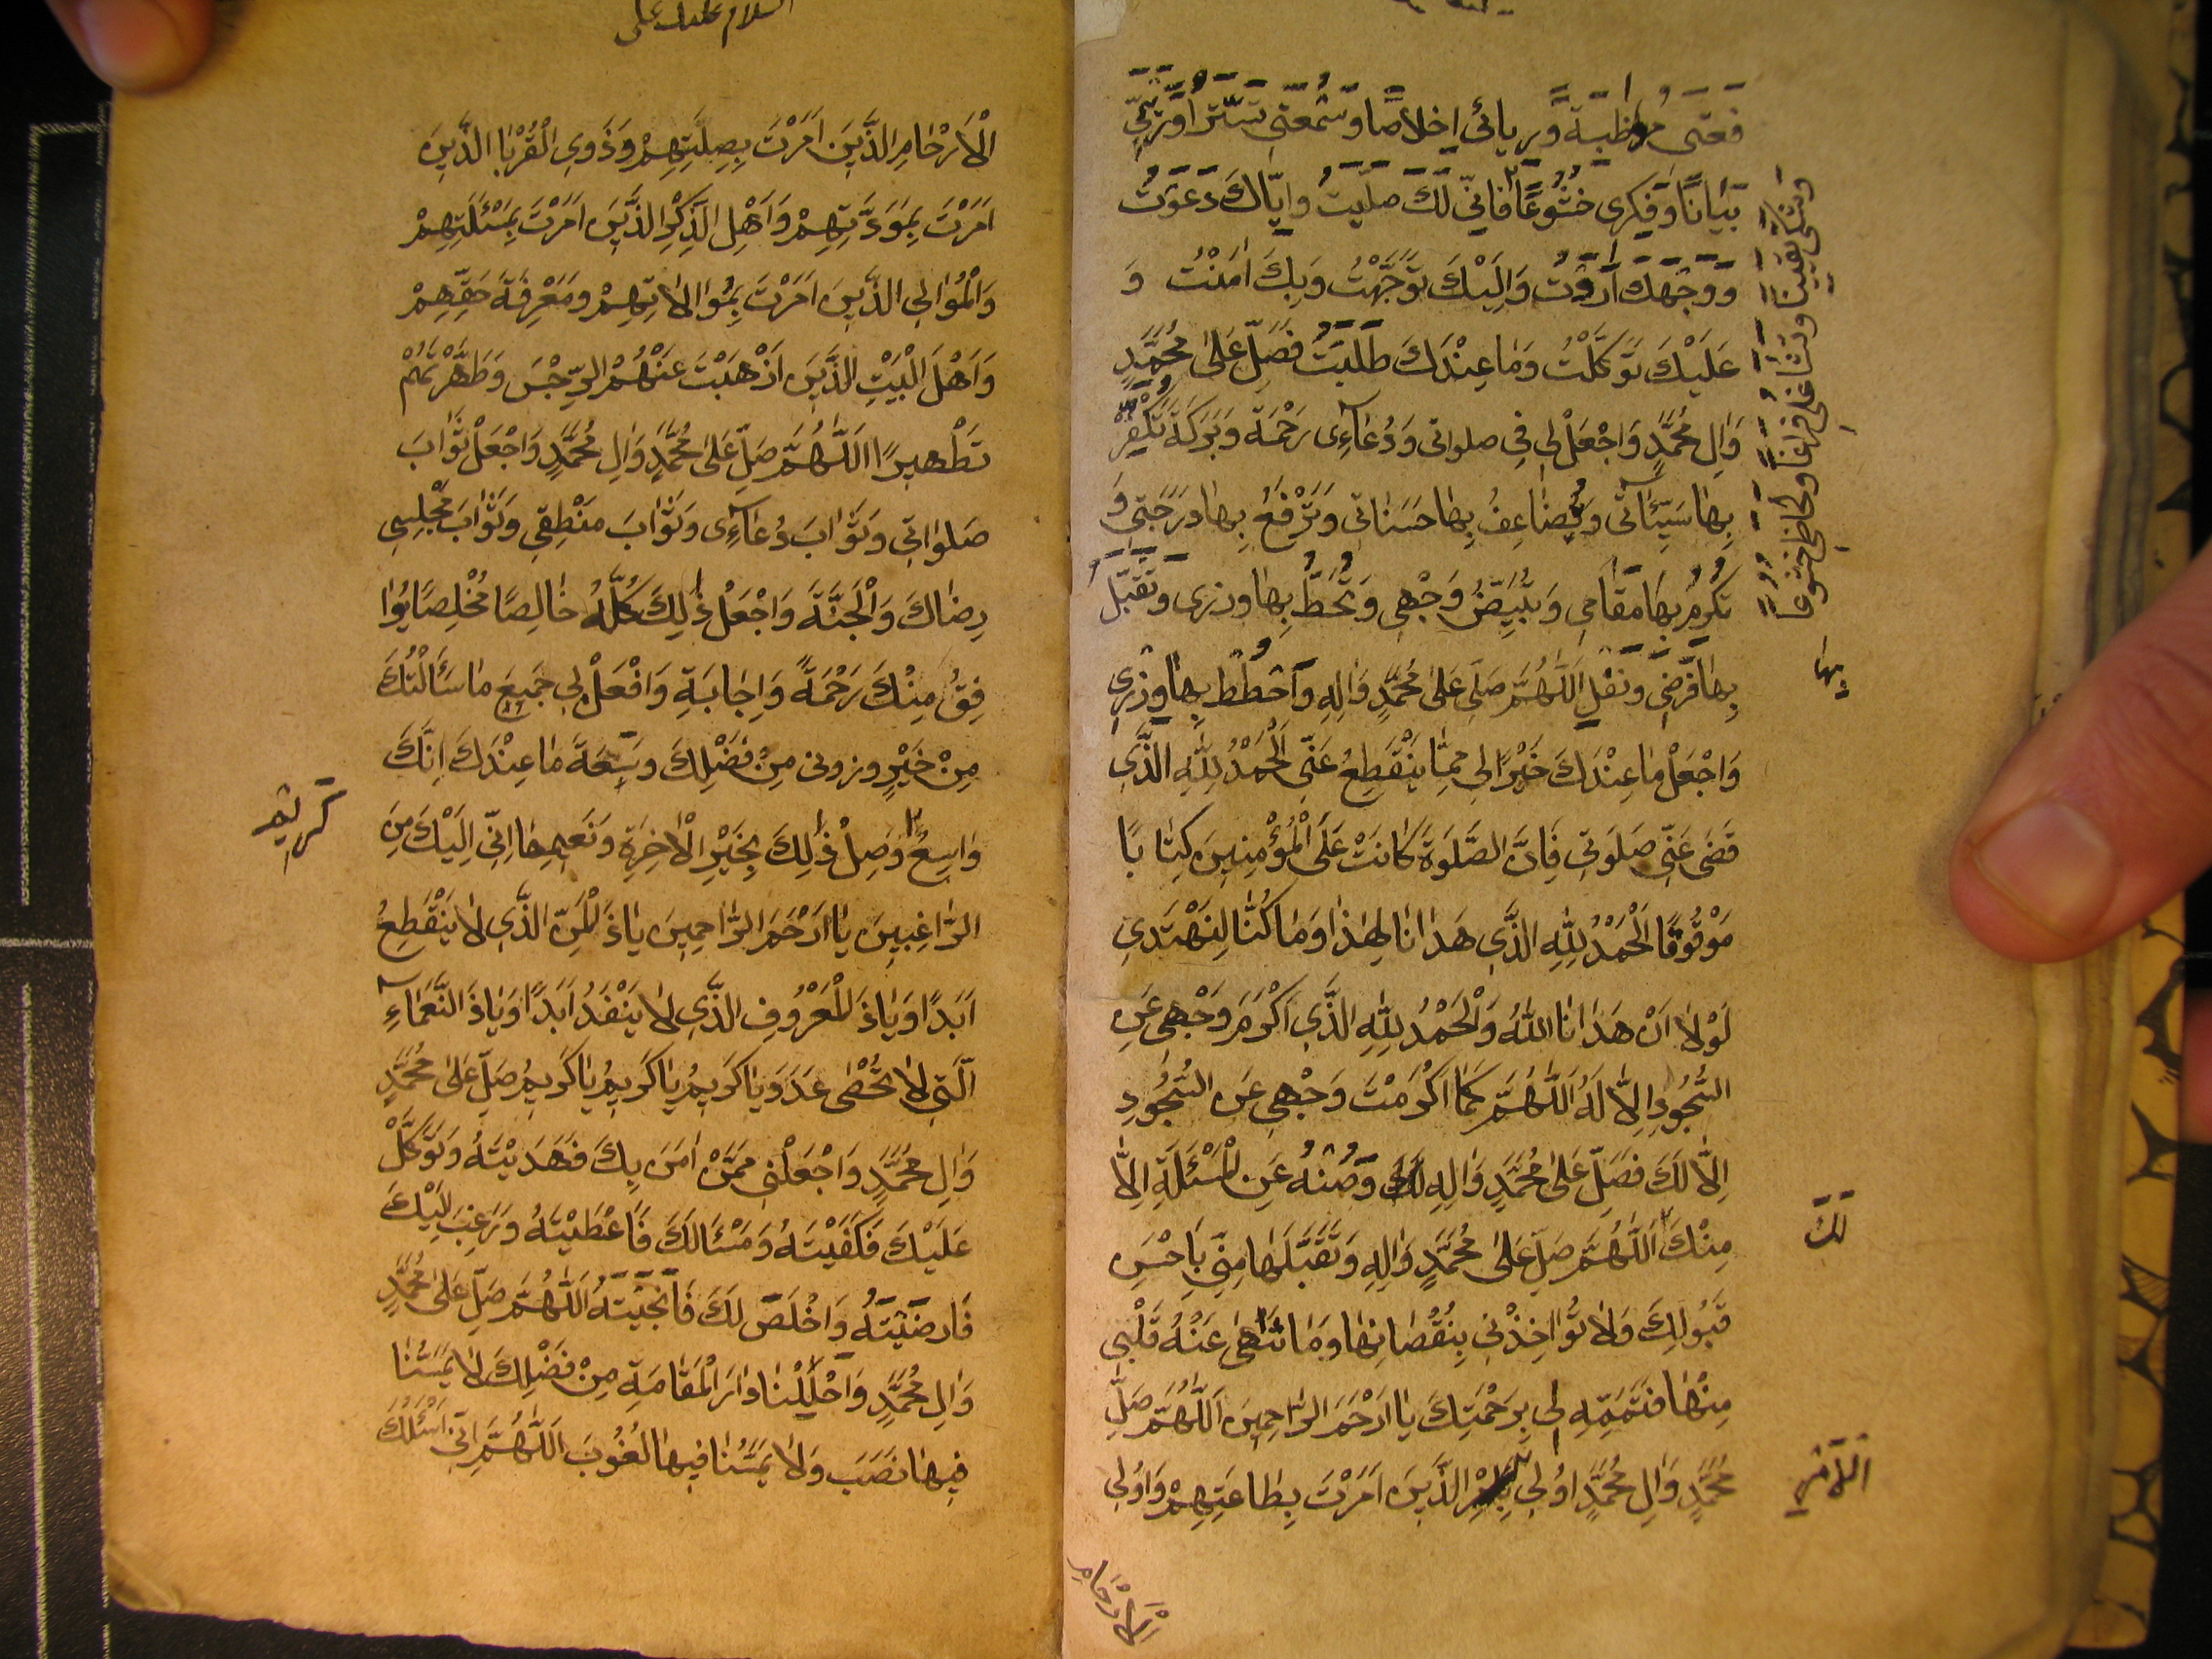 فَتْرَتي مُواظَبَةً وَرِيائي اِخلاصًا وَسُمْعَتي تَسَتُّرًا وَ
بَيانًا وَفِكري خُشُوعًا فَاِنّي لَكَ صَلَّيتُ وَاِيّاكَ دَعَوتُ
وَوَجْهَكَ اَرَدْتُ وَاِلَيْكَ تَوَجَّهْتُ وَبِكَ امَنْتُ وَ
عَلَيْكَ تَوَكَّلْتُ وَمٰا عِنْدَكَ طَلَبْتُ فَصَلِّ عَلىٰ مُحَمَّدٍ
وَالِ مُحَمَّدٍ وَاجْعَلْ لي في صلواتي وَدُعٰاءِى رَحْمَةً وَبَرَكَةً تُكَفِّرُ
بِهٰا سَيِّئٰاتي وَتُضٰاعِفُ بِهٰا حَسَنٰاتي وَتَرْفَعُ بِهٰا دَرَجَتي وَ
تُكرِمُ بِهٰا مَقٰامي وَتُبَيِّضُ وَجْهي وَتَحُطُّ بِهٰا وِزرى وَتَقَبَّل
بِهٰا فَرْضي وَنَفْلي اَللّٰهُمَّ صَلِّ عَلىٰ مُحَمَّدٍ وَالِهِ وَاحْطُطْ بِهٰا وِزْري
وَاجْعَلْ مٰا عِنْدَكَ خَيْرًا لي مِمّٰا يَنْقَطِعُ عَنّي اَلْحَمْدُ لِلّٰهِ الَّذي
قَضىٰ عَنّي صَلَوتي فَاِنَّ الصَّلَوةَ كٰانَتْ عَلَى الْمُؤْمِنينَ كِتٰابًا
مَوْقُوتًا اَلْحَمْدُ لِلّٰهِ الَّذي هَدٰانٰا لِهٰذٰا وَمٰا كُنّٰا لِنَهْتَدِي
لَوْلٰا اَنْ هَدٰانَا اللّٰهُ وَالْحَمْدُ لِلّٰهِ الَّذي اَكْرَمَ وَجْهي عَنِ
السُّجُودِ اِلّٰا لَهُ اَللّٰهُمَّ كَمٰا اَكْرَمْتَ وَجْهي عَنِ السُّجُودِ
اِلّٰا لَكَ فَصَلِّ عَلىٰ مُحَمَّدٍ وَالِهِ وَصُنْهُ عَنِ الْمَسْئَلَةِ اِلّٰا
مِنْكَ اَللّٰهُمَّ صَلِّ عَلىٰ مُحَمَّدٍ وَالِهِ وَتَقَبَّلْهٰا مِنّي بِاَحْسَنِ
قَبُولِكَ وَلٰا تُؤٰاخِذْني بِنُقْصٰانِهٰا وَمٰا سَهىٰ عَنْهُ قَلْبي
مِنْهٰا فَتَمِّمْهِ لي بِرَحْمَتِكَ يٰا اَرْحَمَ الرّٰاحِمينَ اَللّٰهُمَّ صَلِّ
مُحَمَّدٍ وَالِ مُحَمَّدٍ اُولي الَّذينَ اَمَرْتَ بِطٰاعَتِهِمْ وَاُولي
بِهٰا
لَكَ
اَلْاَمْرِ
الْاَرْحٰامِ
السلام عليك
الْاَرْحٰامِ الَّذينَ اَمَرْتَ بِصِلَتِهِمْ وَذَوِي الْقُرْبَا الَّذينَ
اَمَرْتَ بِمَوَدَّتِهِمْ وَاَهْلِ الذِّكْرِ الَّذينَ اَمَرْتَ بِمَسْئَلَتِهِمْ
وَالْمُوٰالِي الَّذينَ اَمَرْتَ بِمُوٰالٰاتِهِمْ وَمَعْرِفَةِ حَقِّهِمْ
وَاَهْلَ الْبَيْتِ الَّذينَ اَذْهَبْتَ عَنْهُمُ الرِّجْسَ وَطَهَّرْتَهُمْ
تَطْهيرًا اَللّٰهُمَّ صَلِّ عَلىٰ مُحَمَّدٍ وَالِ مُحَمَّدٍ وَاجْعَلْ ثَوٰابَ
صَلوٰاتي وَثَوٰابَ دُعٰاءِى وَثَوٰابَ مَنْطِقي وَثَوٰابَ مَجْلِسي
رِضٰاكَ وَالْجَنَّةَ وَاجْعَلْ ذٰلِكَ كُلَّهُ خٰالِصًا مُخْلِصًا يُوٰا
فِقُ مِنْكَ رَحْمَةً وَاِجٰابَةِ وَافْعَلْ بي جَميعَ مٰا سَئَالْتُكَ
مِنْ خَيْرٍ وزدنى مِنْ فَضْلِكَ وَسِعَةَ مٰا عِنْدَكَ اِنَّكَ
وٰاسِعٌ وَصِلْ ذٰلِكَ بِخَيْرِ الْاٰخِرَةِ وَنَعيمِهٰا اِنّي اِلَيْكَ مِنَ
الرّٰاغِبينَ يٰا اَرْحَمَ الرّٰاحِمينَ يٰا ذَالْمَنِّ الَّذي لٰا يَنْقَطِعُ
اَبَدًا وَيٰا ذَالْمَعْرُوفِ الَّذي لٰا يَنْفَدُ اَبَدًا وَيٰا ذَالنَّعْمٰاءِ
الَّتي لٰا تُحْصٰى عَدَدَ وَيٰا كَريمُ يٰا كَريمُ يٰا كَريمُ صَلِّ عَلىٰ مُحَمَّدٍ
وَالِ مُحَمَّدٍ وَاجْعَلْني مِمَّنْ امَنَ بِكَ فَهَدَيْتَهُ وَتَوَكَّلْ
عَلَيْكَ فَكَفَيْتَهُ وَمَسْئَالَكَ فَاَعْطَيْتَهُ وَرَغِبَ اِلَيْكَ
فَاَرضَيْتَهُ وَاَخْلَصَ لَكَ فَاَنْجَيْتَهُ اَللّٰهُمَّ صَلِّ عَلىٰ مُحَمَّدٍ
وَالِ مُحَمَّدٍ وَاَحْلِلْنٰا دٰارَ الْمُقٰامَةِ مِنْ فَضْلِكَ لٰا يَمَسُّنٰا
فيهٰا نَصَبَ وَلٰا يَمَسُّنٰا فيهٰا لُغُوبَ اَللّٰهُمَّ اِنّي اَسْئَلُكَ
كَريم